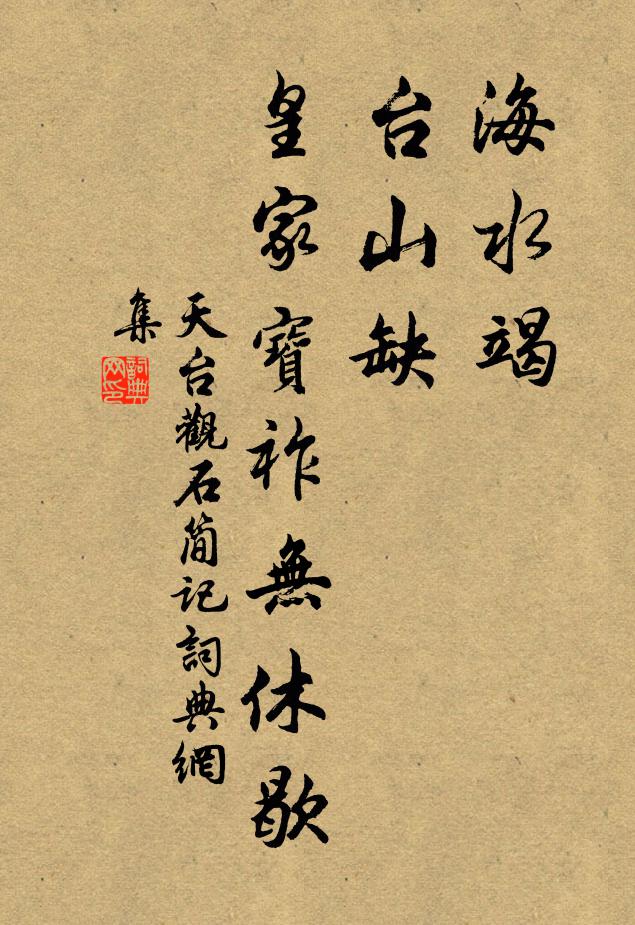 海水竭
台山缺
皇家寶祚無休歇
天台觀石簡記詞典網
集
詞典
网印